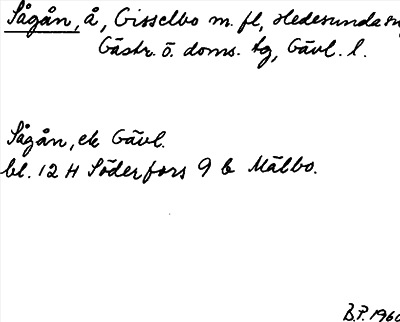 Sågån, å, Gisselbo m. fl, Hedesunda sn,
Gästr. ö. doms. tg, Gävl. l.
Sågån, ek Gävl.
bl. 12 H Söderfors 9 b Mälbo.
B.P. 1960